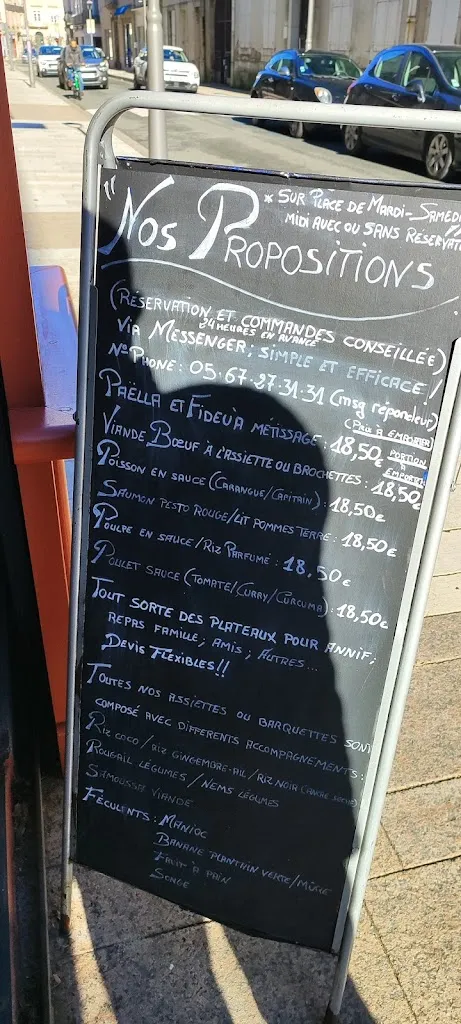 "Nos Propositions
* Sur Place de Mardi-Samedi
midi avec ou sans réservat
(Réservation et commandes conseillée)
24 heures en avance
via Messenger; simple et efficace!
N° Phone: 05.67.27.31.31 (msg répondeur)
Paëlla et Fideùa métissage: 18,50€ (Prix à emporter)
Viande Bœuf à l'assiette ou brochettes: 18,50€ Portion à emporter
Poisson en sauce (Carangue/Capitain): 18,50€
Saumon pesto rouge/lit pommes terre: 18,50€
Poulpe en sauce/Riz Parfumé: 18,50€
Poulet sauce (Tomate/Curry/Curcuma): 18,50€
Tout sorte des plateaux pour annif;
repas famille; amis; autres...
Devis flexibles!!
Toutes nos assiettes ou barquettes sont
composé avec differents accompagnements:
Riz coco/riz gingembre-ail/riz noir
Rougail légumes/Nems légumes
Samoussa viande
Féculents: Manioc
Banane plantain verte/mûre
Fruit à pain
Songe